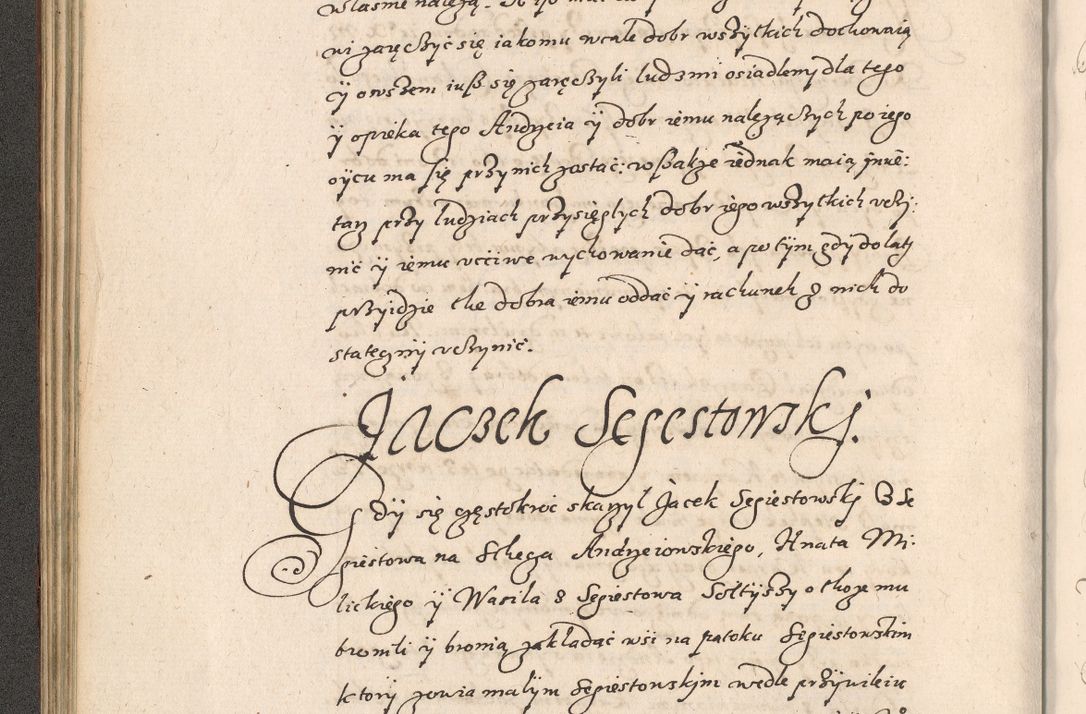 własme należą.
wi zaręczyć się iakomu wcale dobr wszytkich dochowaią
ÿ owszem iusz się zaręczyli ludzmi osiadlemy dla tego
ÿ opieka tego Andrzeia ÿ dobr iemu nalezączych po iego
oÿcu ma się przy nich zostać: wszakze iednak maią inwe:
tarz przy ludziach przysięgłych dobr iego wszytkich vczÿ:
nić ÿ iemu vcciwe wychowanie dać, a po tÿm gdÿ do laty
przyidzie the dobra iemu oddać ÿ rachunek z nich do
stateczny vczynić.
Jaczek Segestowskj.
Gdÿ się częstokroć skarzył Jacek Segiestowskj z Se
giestowa na Schega Andrzeiowskiego, Hnata Mi:
lickiego ÿ Wasila z Segiestowa Sołtyszy o thoze mu
bronili ÿ bronią zakładać wsi na patoku Segiestowskim
ktory zowia małÿm Segiestowskjm wedle przywileiu